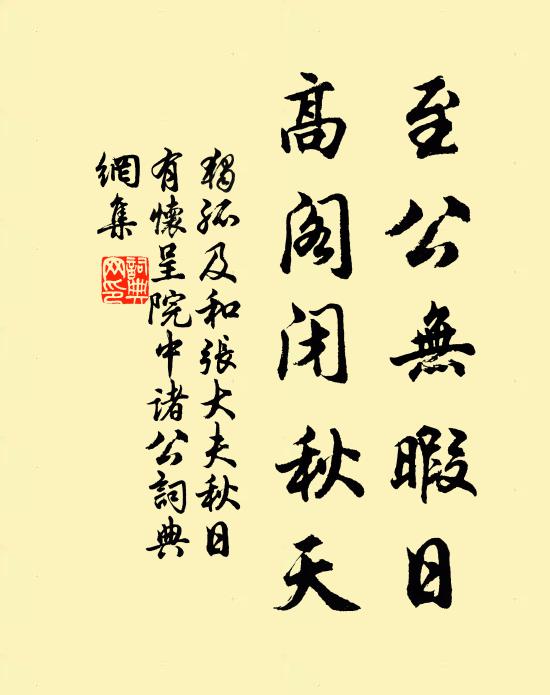 至公無暇日
高阁闭秋天
獨孤及和張大夫秋日
有懷呈院中诸公詞典
網集
詞典
网印